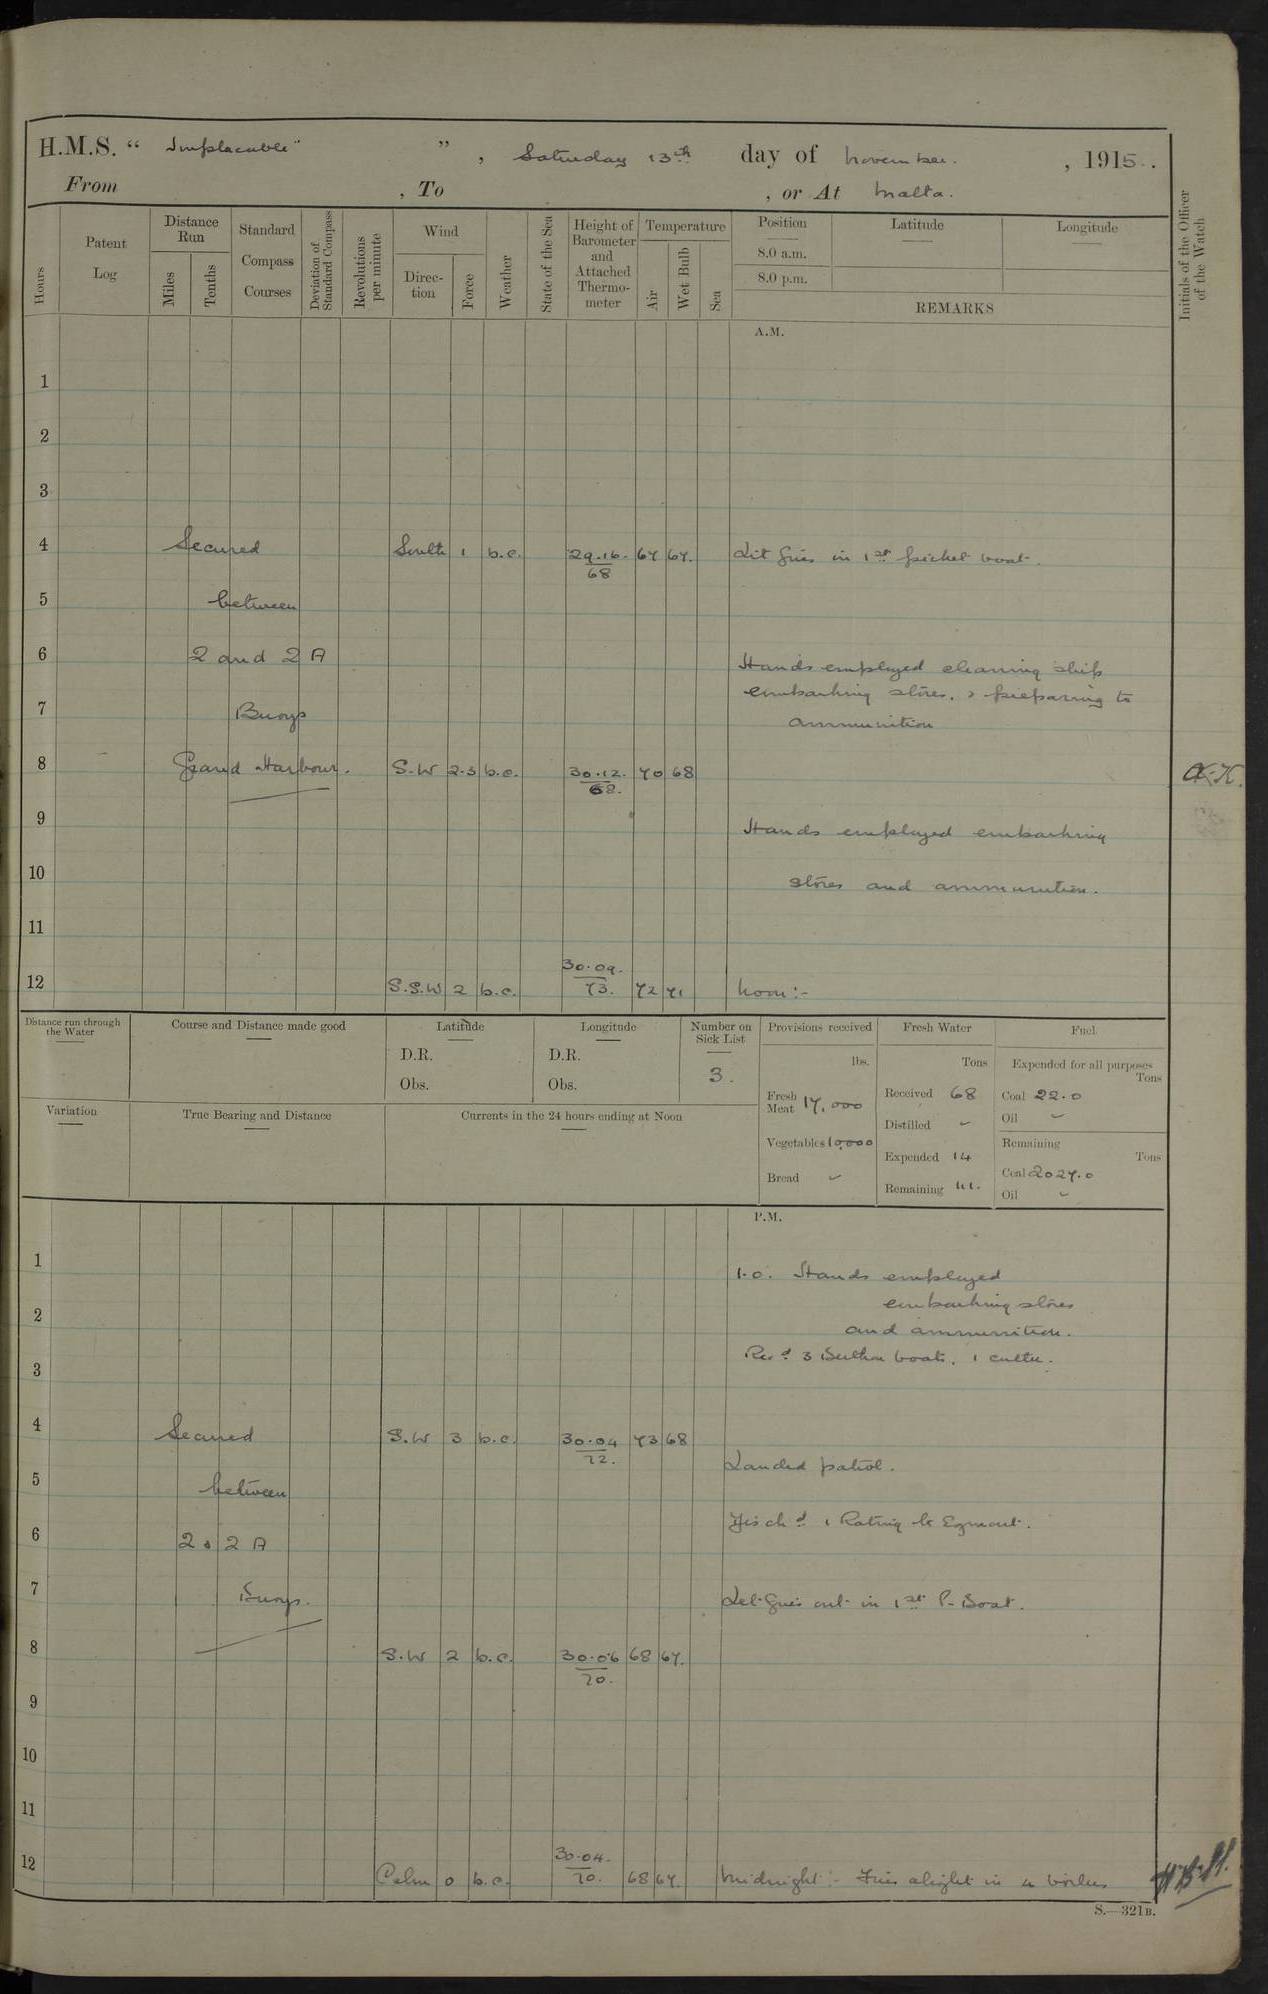 H.M.S. " Implacable " , Saturday 13th day of November. , 1915.
From , To , or At Malta.
Hours
Patent Log
Distance Run
Miles
Tenths
Standard Compass Courses
Deviation of Standard Compass
Revolutions per minute
Wind
Direc-tion
Force
Weather
State of the Sea
Height of Barometer and Attached Thermo-meter
Temperature
Air
Wet Bulb
Sea
Position
8.0 a.m.
8.0 p.m.
Latitude
Longitude
REMARKS
Initials of the Officer of the Watch
A.M.
1
2
3
4 Secured South 1 b.c. 29.16. 67 67. Lit fires in 1st picket boat.
68
5 between
6 2 and 2 A
Hands employed cleaning ship
embarking stores, & preparing to
7 Buoys
ammunition
8 Grand Harbour. S.W 2.3 b.c. 30.12. 70 68 A.K.
68.
9 Hands employed embarking
10 stores and ammunition.
11
30.09.
12 S.S.W 2 b.c. 73. 72 71 Noon:-
Distance run through the Water
Course and Distance made good
Latitude
D.R.
Obs.
Longitude
D.R.
Obs.
Number on Sick List
3.
Provisions received
lbs.
Fresh Meat 17,000
Vegetables 10,000
Bread -
Fresh Water
Tons
Received 68
Distilled -
Expended 14
Remaining 111.
Fuel
Expended for all purposes
Tons
Coal 22.0
Oil -
Remaining
Tons
Coal 2027.0
Oil -
Variation
True Bearing and Distance
Currents in the 24 hours ending at Noon
P.M.
1 1.0. Hands employed
embarking stores
2 and ammunition.
3 Recd 3 Berthon boats, 1 cutter.
4 Secured S.W 3 b.c. 30.04 73 68
72.
Landed patrol.
5 between
6 2 & 2 A Dischd 1 Rating to Egmont.
7 Buoys. Let fires out in 1st P. Boat.
8 S.W 2 b.c. 30.06 68 67.
70.
9
10
11
30.04.
12 Calm 0 b.c. 70. 68 67. Midnight:- Fires alight in 4 boilers
S.—321B.